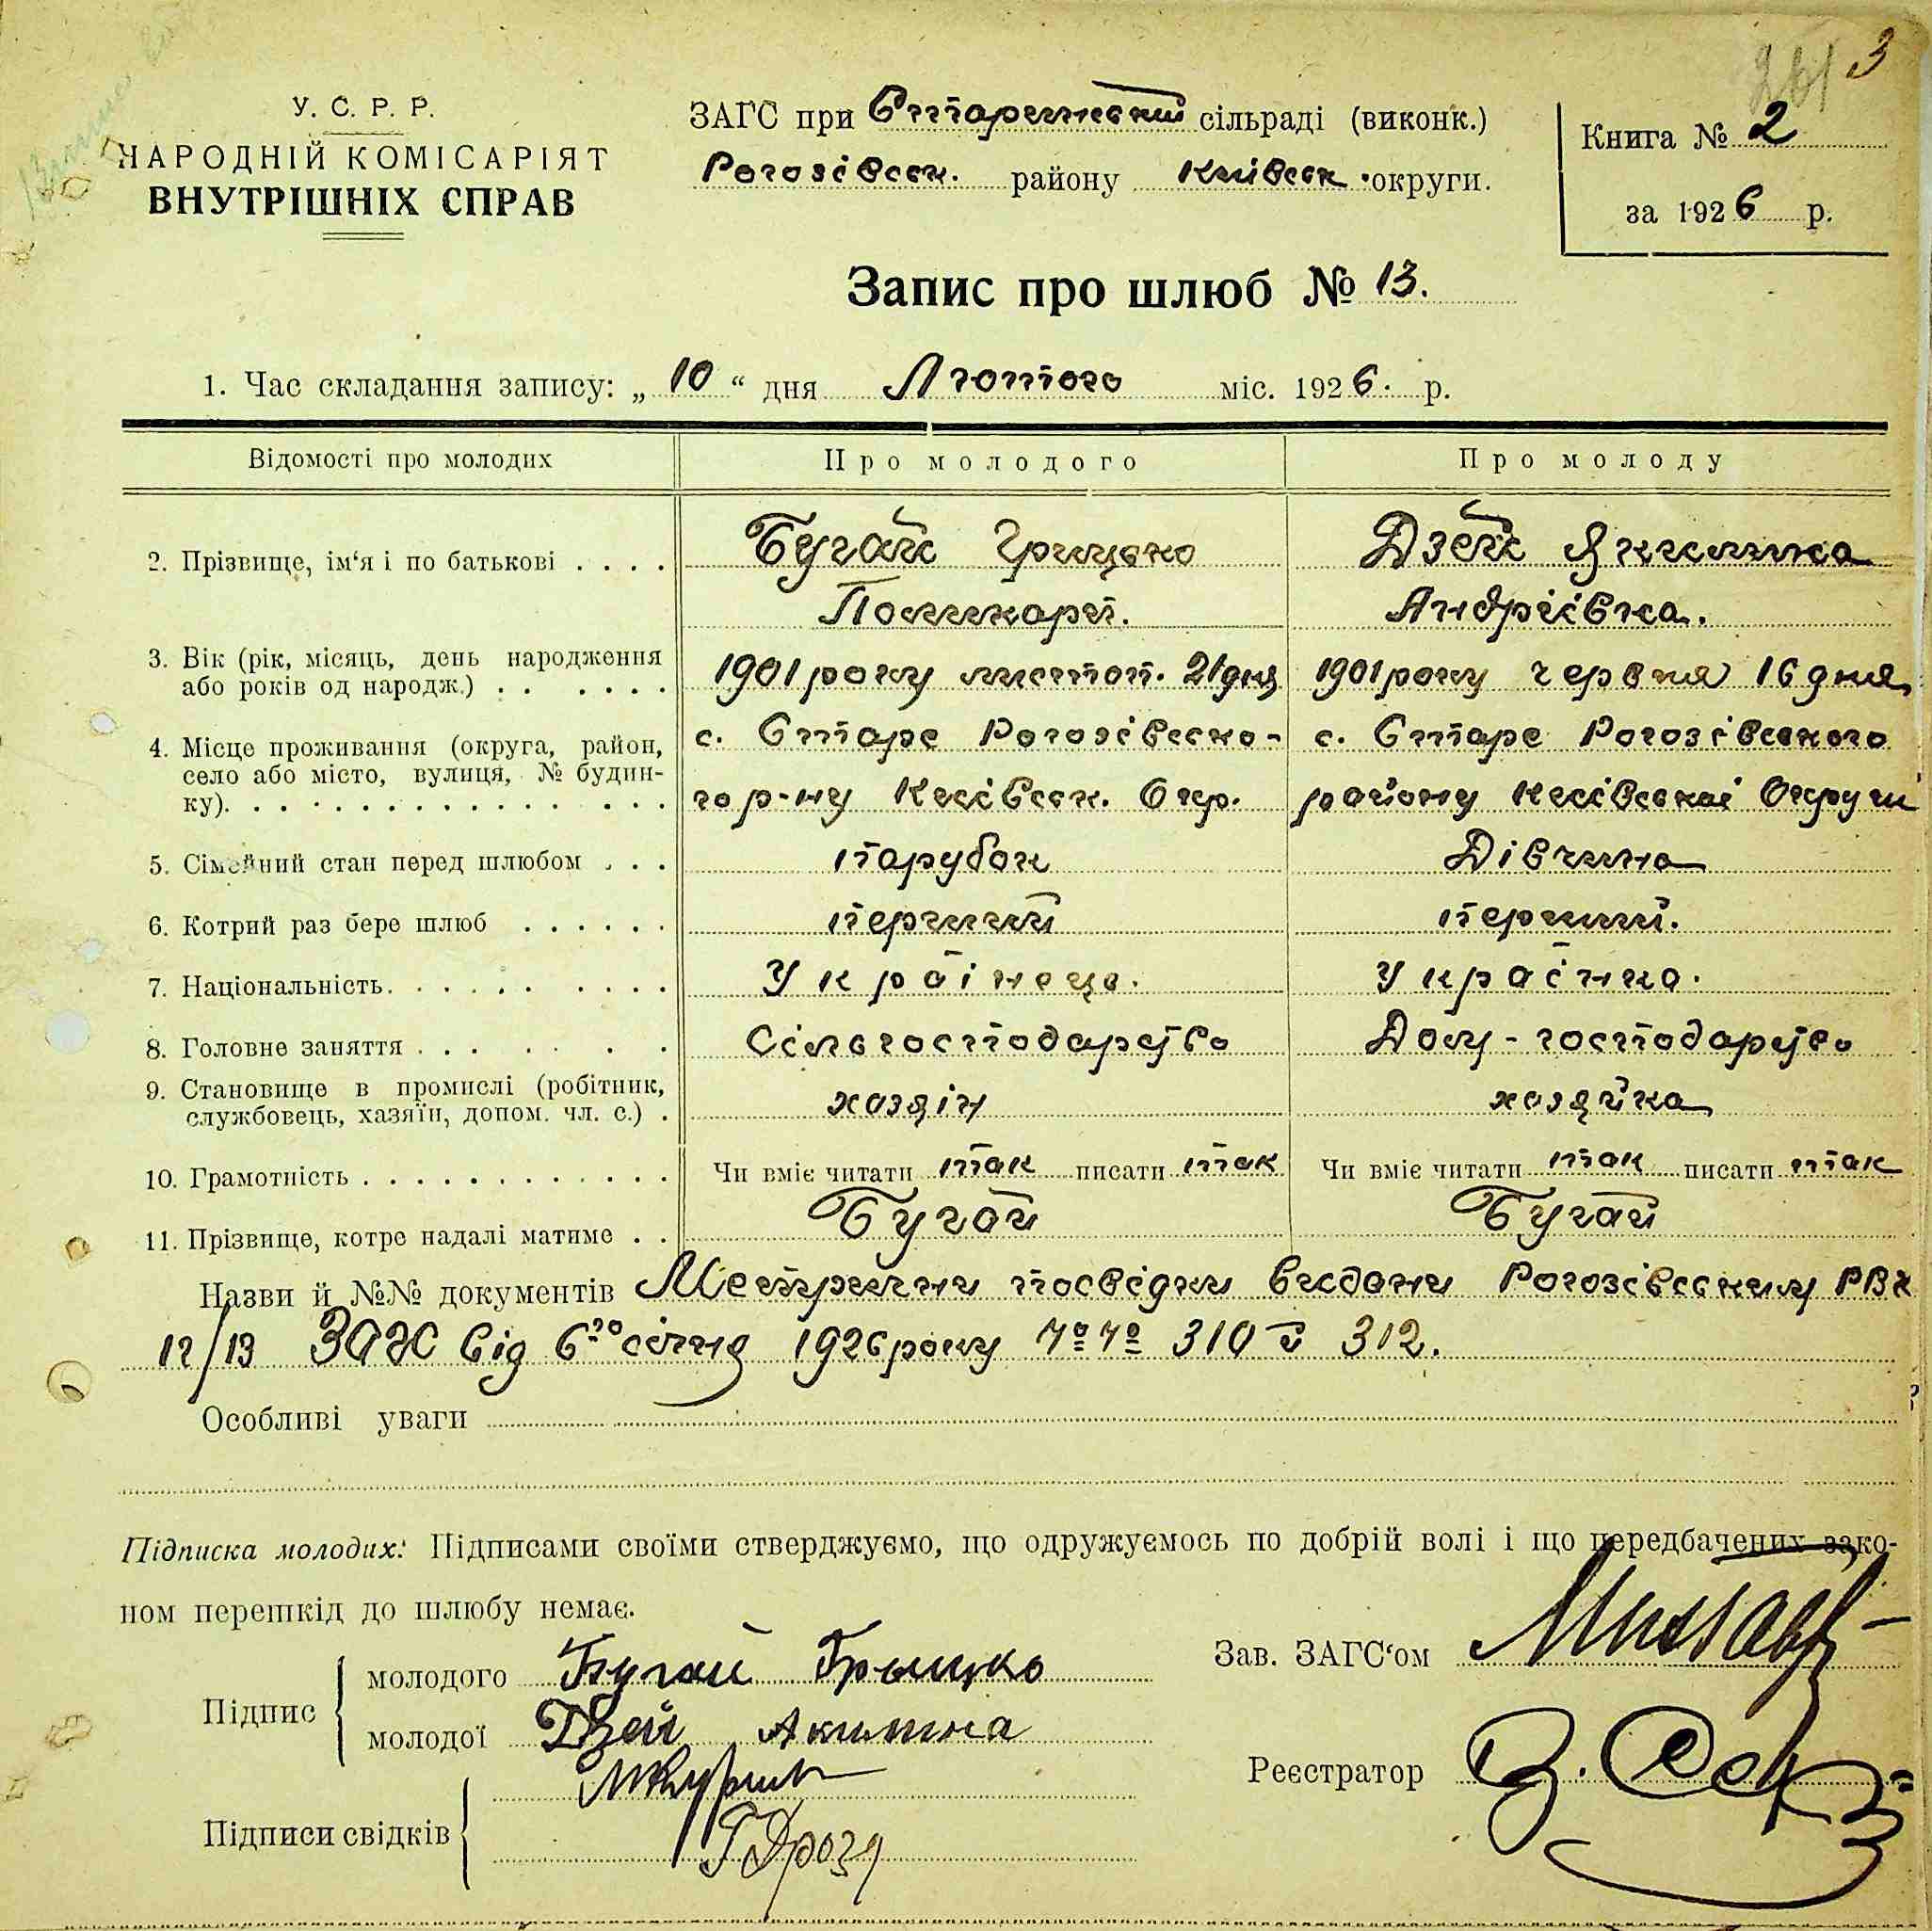 3
У. С. Р. Р.
НАРОДНІЙ КОМІСАРІЯТ
ВНУТРІШНІХ СПРАВ
ЗАГС при Старинській сільраді (виконк.)
Рогозівськ. району Київськ округи.
Книга № 2
за 1926 р.
Запис про шлюб № 13.
1. Час складання запису: „ 10 “ дня Лютого міс. 1926. р.
Відомості про молодих Про молодого Про молоду
2. Прізвище, ім‘я і по батькові . . . . Бугай Грицько Дзей Якилина
Поликарп. Андріївна.
3. Вік (рік, місяць, день народження 1901 року листоп. 21 дня 1901 року червня 16 дня
або років од народж.) . . . . . .
4. Місце проживання (округа, район, с. Старе Рогозівсько- с. Старе Рогозівського
село або місто, вулиця, № будин-
ку). . . . . . . . . . . . . . . го р-ну Київськ. Окр. району Київської Округи
5. Сімейний стан перед шлюбом . . . парубок Дівчина
6. Котрий раз бере шлюб . . . . . . перший перший.
7. Національність. . . . . . . . . . Українець. Українка.
8. Головне заняття . . . . . . . Сільгосподарство Дом-господарство
9. Становище в промислі (робітник,
службовець, хазяїн, допом. чл. с.) . хозяін хозяйка
10. Грамотність . . . . . . . . . . . . . Чи вміє читати так писати так Чи вміє читати так писати так
11. Прізвище, котре надалі матиме . . Бугай Бугай
Назви й №№ документів Метричани посвідки видани Рогозівським РВК
12/13 ЗАГС від 6го січня 1926 року №№ 310 й 312.
Особливі уваги
Підписка молодих: Підписами своїми стверджуємо, що одружуємось по добрій волі і що передбачених зако-
ном перешкід до шлюбу немає.
Підпис
молодого Бугай Грыцко
молодої Дзей Акилина
Підписи свідків
ГДрозд
Зав. ЗАГС‘ом
Реєстратор